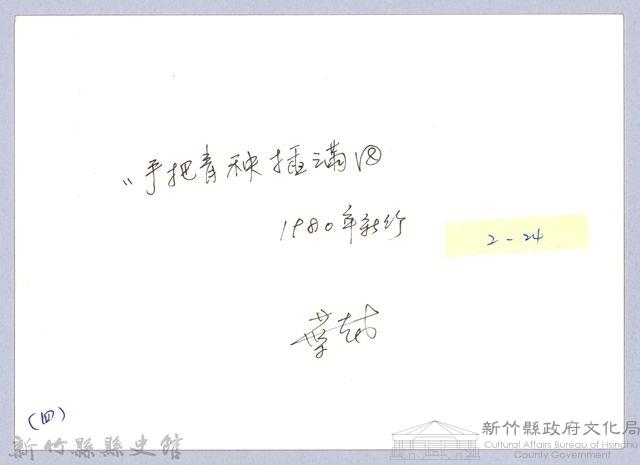 "手把青秧插滿田
1980年新竹
2-24
葉
(四)
新竹縣縣史館
新竹縣政府文化局
Cultural Affairs Bureau of Hsinchu
County Government